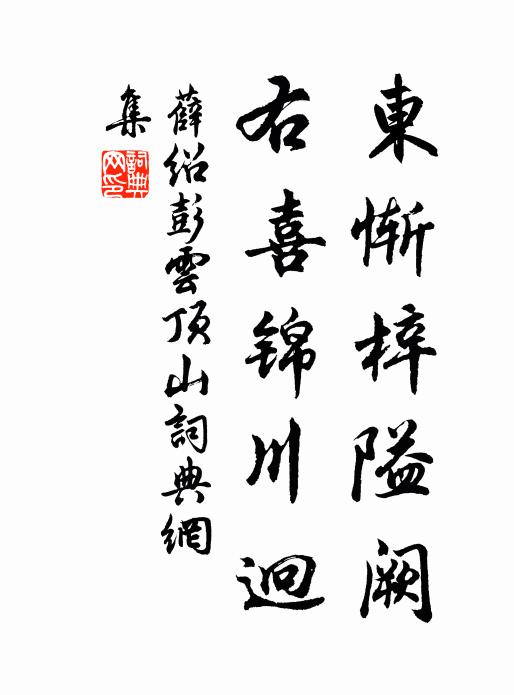 東慚梓隘阙
右喜锦川迥
薛绍彭雲顶山詞典網
集
詞典
网印